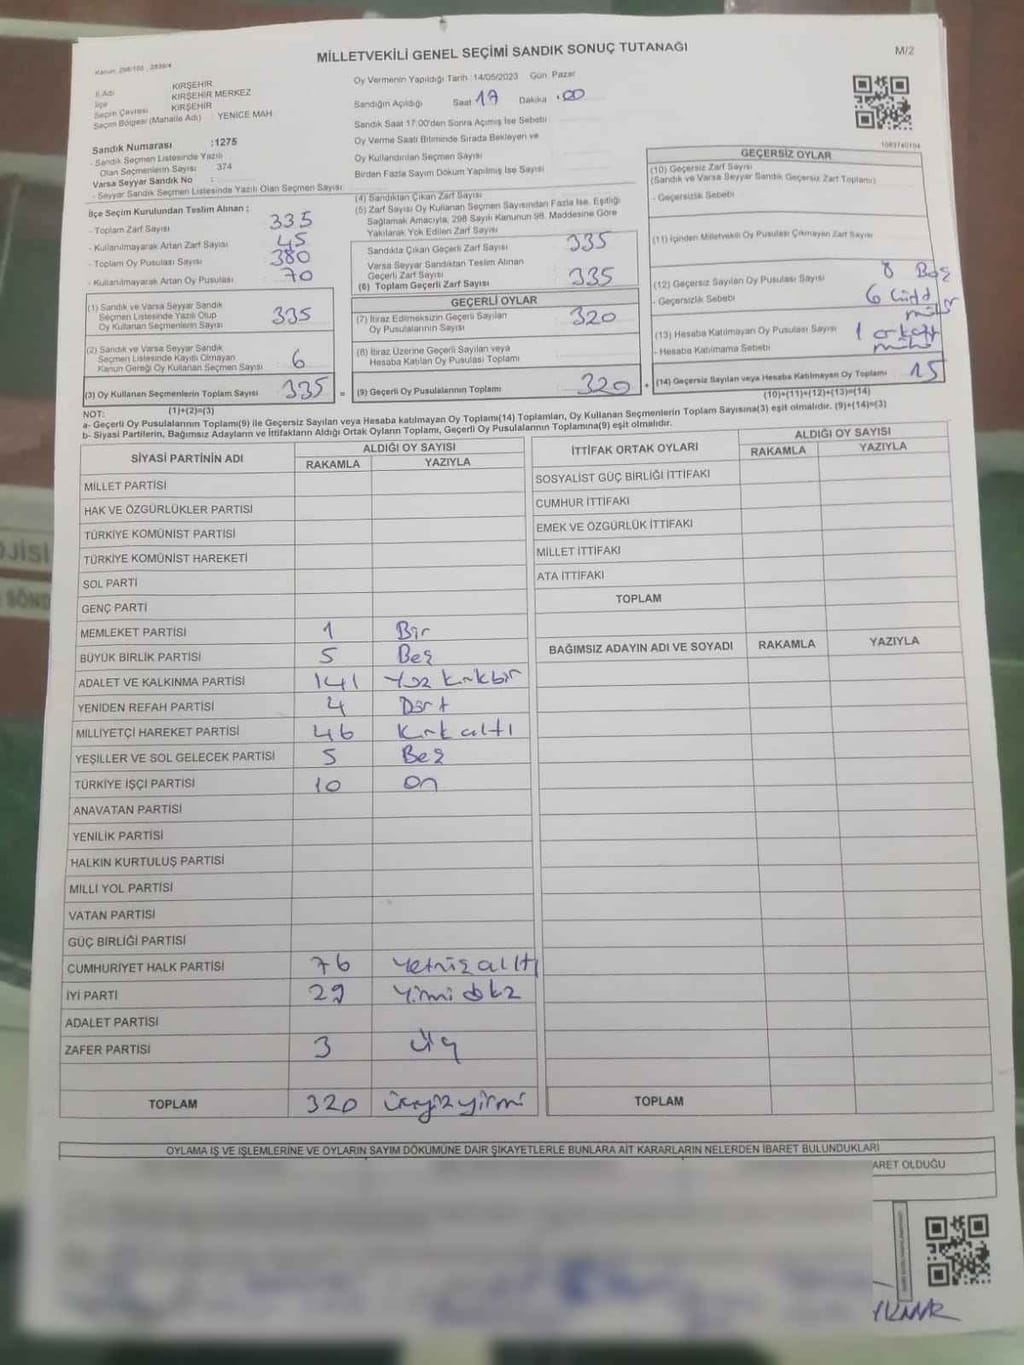 MİLLETVEKİLİ GENEL SEÇİMİ SANDIK SONUÇ TUTANAĞI
M/2
İl Adı KIRŞEHİR
İlçe KIRŞEHİR MERKEZ
Seçim Çevresi KIRŞEHİR
Seçim Bölgesi (Mahalle Adı) : YENİCE MAH
Oy Vermenin Yapıldığı Tarih :14/05/2023 Gün Pazar
Sandığın Açıldığı Saat 17 Dakika .00
Sandık Saat 17:00'den Sonra Açımış İse Sebebi
Oy Verme Saati Bitiminde Sırada Bekleyen ve
Oy Kullandırılan Seçmen Sayısı
Birden Fazla Sayım Döküm Yapılmış İse Sayısı
Sandık Numarası :1275
- Sandık Seçmen Listesinde Yazılı
Olan Seçmenlerin Sayısı 374
Varsa Seyyar Sandık No :
- Seyyar Sandık Seçmen Listesinde Yazılı Olan Seçmen Sayısı
İlçe Seçim Kurulundan Teslim Alınan ;
- Toplam Zarf Sayısı 335
- Kullanılmayarak Artan Zarf Sayısı 45
- Toplam Oy Pusulası Sayısı 380
- Kullanılmayarak Artan Oy Pusulası 70
(1) Sandık ve Varsa Seyyar Sandık
Seçmen Listesinde Yazılı Olup
Oy Kullanan Seçmenlerin Sayısı 335
(2) Sandık ve Varsa Seyyar Sandık
Seçmen Listesinde Kayıtlı Olmayan
Kanun Gereği Oy Kullanan Seçmen Sayısı 6
(3) Oy Kullanan Seçmenlerin Toplam Sayısı 335 =
(1)+(2)=(3)
(4) Sandıktan Çıkan Zarf Sayısı
(5) Zarf Sayısı Oy Kullanan Seçmen Sayısından Fazla İse, Eşitliği
Sağlamak Amacıyla, 298 Sayılı Kanunun 98. Maddesine Göre
Yakılarak Yok Edilen Zarf Sayısı
Sandıkta Çıkan Geçerli Zarf Sayısı 335
Varsa Seyyar Sandıktan Teslim Alınan
Geçerli Zarf Sayısı
(6) Toplam Geçerli Zarf Sayısı 335
GEÇERLİ OYLAR
(7) İtiraz Edilmeksizin Geçerli Sayılan
Oy Pusulalarının Sayısı 320
(8) İtiraz Üzerine Geçerli Sayılan veya
Hesaba Katılan Oy Pusulası Toplamı
(9) Geçerli Oy Pusulalarının Toplamı 320 +
GEÇERSİZ OYLAR
(10) Geçersiz Zarf Sayısı
(Sandık ve Varsa Seyyar Sandık Geçersiz Zarf Toplamı)
- Geçersizlik Sebebi
(11) İçinden Milletvekili Oy Pusulası Çıkmayan Zarf Sayısı
(12) Geçersiz Sayılan Oy Pusulası Sayısı 8 Boş
- Geçersizlik Sebebi 6
(13) Hesaba Katılmayan Oy Pusulası Sayısı 1
- Hesaba Katılmama Sebebi
(14) Geçersiz Sayılan veya Hesaba Katılmayan Oy Toplamı 15
(10)+(11)+(12)+(13)=(14)
NOT:
a- Geçerli Oy Pusulasının Toplamı(9) ile Geçersiz Sayılan veya Hesaba katılmayan Oy Toplamı(14) Toplamları, Oy Kullanan Seçmenlerin Toplam Sayısına(3) eşit olmalıdır. (9)+(14)=(3)
b- Siyasi Partilerin, Bağımsız Adayların ve İttifakların Aldığı Ortak Oyların Toplamı, Geçerli Oy Pusulalarının Toplamına(9) eşit olmalıdır.
SİYASİ PARTİNİN ADI
ALDIĞI OY SAYISI
RAKAMLA YAZIYLA
MİLLET PARTİSİ
HAK VE ÖZGÜRLÜKLER PARTİSİ
TÜRKİYE KOMÜNİST PARTİSİ
TÜRKİYE KOMÜNİST HAREKETİ
SOL PARTİ
GENÇ PARTİ
MEMLEKET PARTİSİ 1 Bir
BÜYÜK BİRLİK PARTİSİ 5 Beş
ADALET VE KALKINMA PARTİSİ 141 Yüz kırkbir
YENİDEN REFAH PARTİSİ 4 Dört
MİLLİYETÇİ HAREKET PARTİSİ 46 Kırk altı
YEŞİLLER VE SOL GELECEK PARTİSİ 5 Beş
TÜRKİYE İŞÇİ PARTİSİ 10 On
ANAVATAN PARTİSİ
YENİLİK PARTİSİ
HALKIN KURTULUŞ PARTİSİ
MİLLİ YOL PARTİSİ
VATAN PARTİSİ
GÜÇ BİRLİĞİ PARTİSİ
CUMHURİYET HALK PARTİSİ 76 Yetmiş altı
İYİ PARTİ 29 Yirmi dokuz
ADALET PARTİSİ
ZAFER PARTİSİ 3 Üç
TOPLAM 320 Üçyüzyirmi
İTTİFAK ORTAK OYLARI
ALDIĞI OY SAYISI
RAKAMLA YAZIYLA
SOSYALİST GÜÇ BİRLİĞİ İTTİFAKI
CUMHUR İTTİFAKI
EMEK VE ÖZGÜRLÜK İTTİFAKI
MİLLET İTTİFAKI
ATA İTTİFAKI
TOPLAM
BAĞIMSIZ ADAYIN ADI VE SOYADI RAKAMLA YAZIYLA
TOPLAM
OYLAMA İŞ VE İŞLEMLERİNE VE OYLARIN SAYIM DÖKÜMÜNE DAİR ŞİKAYETLERLE BUNLARA AİT KARARLARIN NELERDEN İBARET BULUNDUKLARI
ARET OLDUĞU